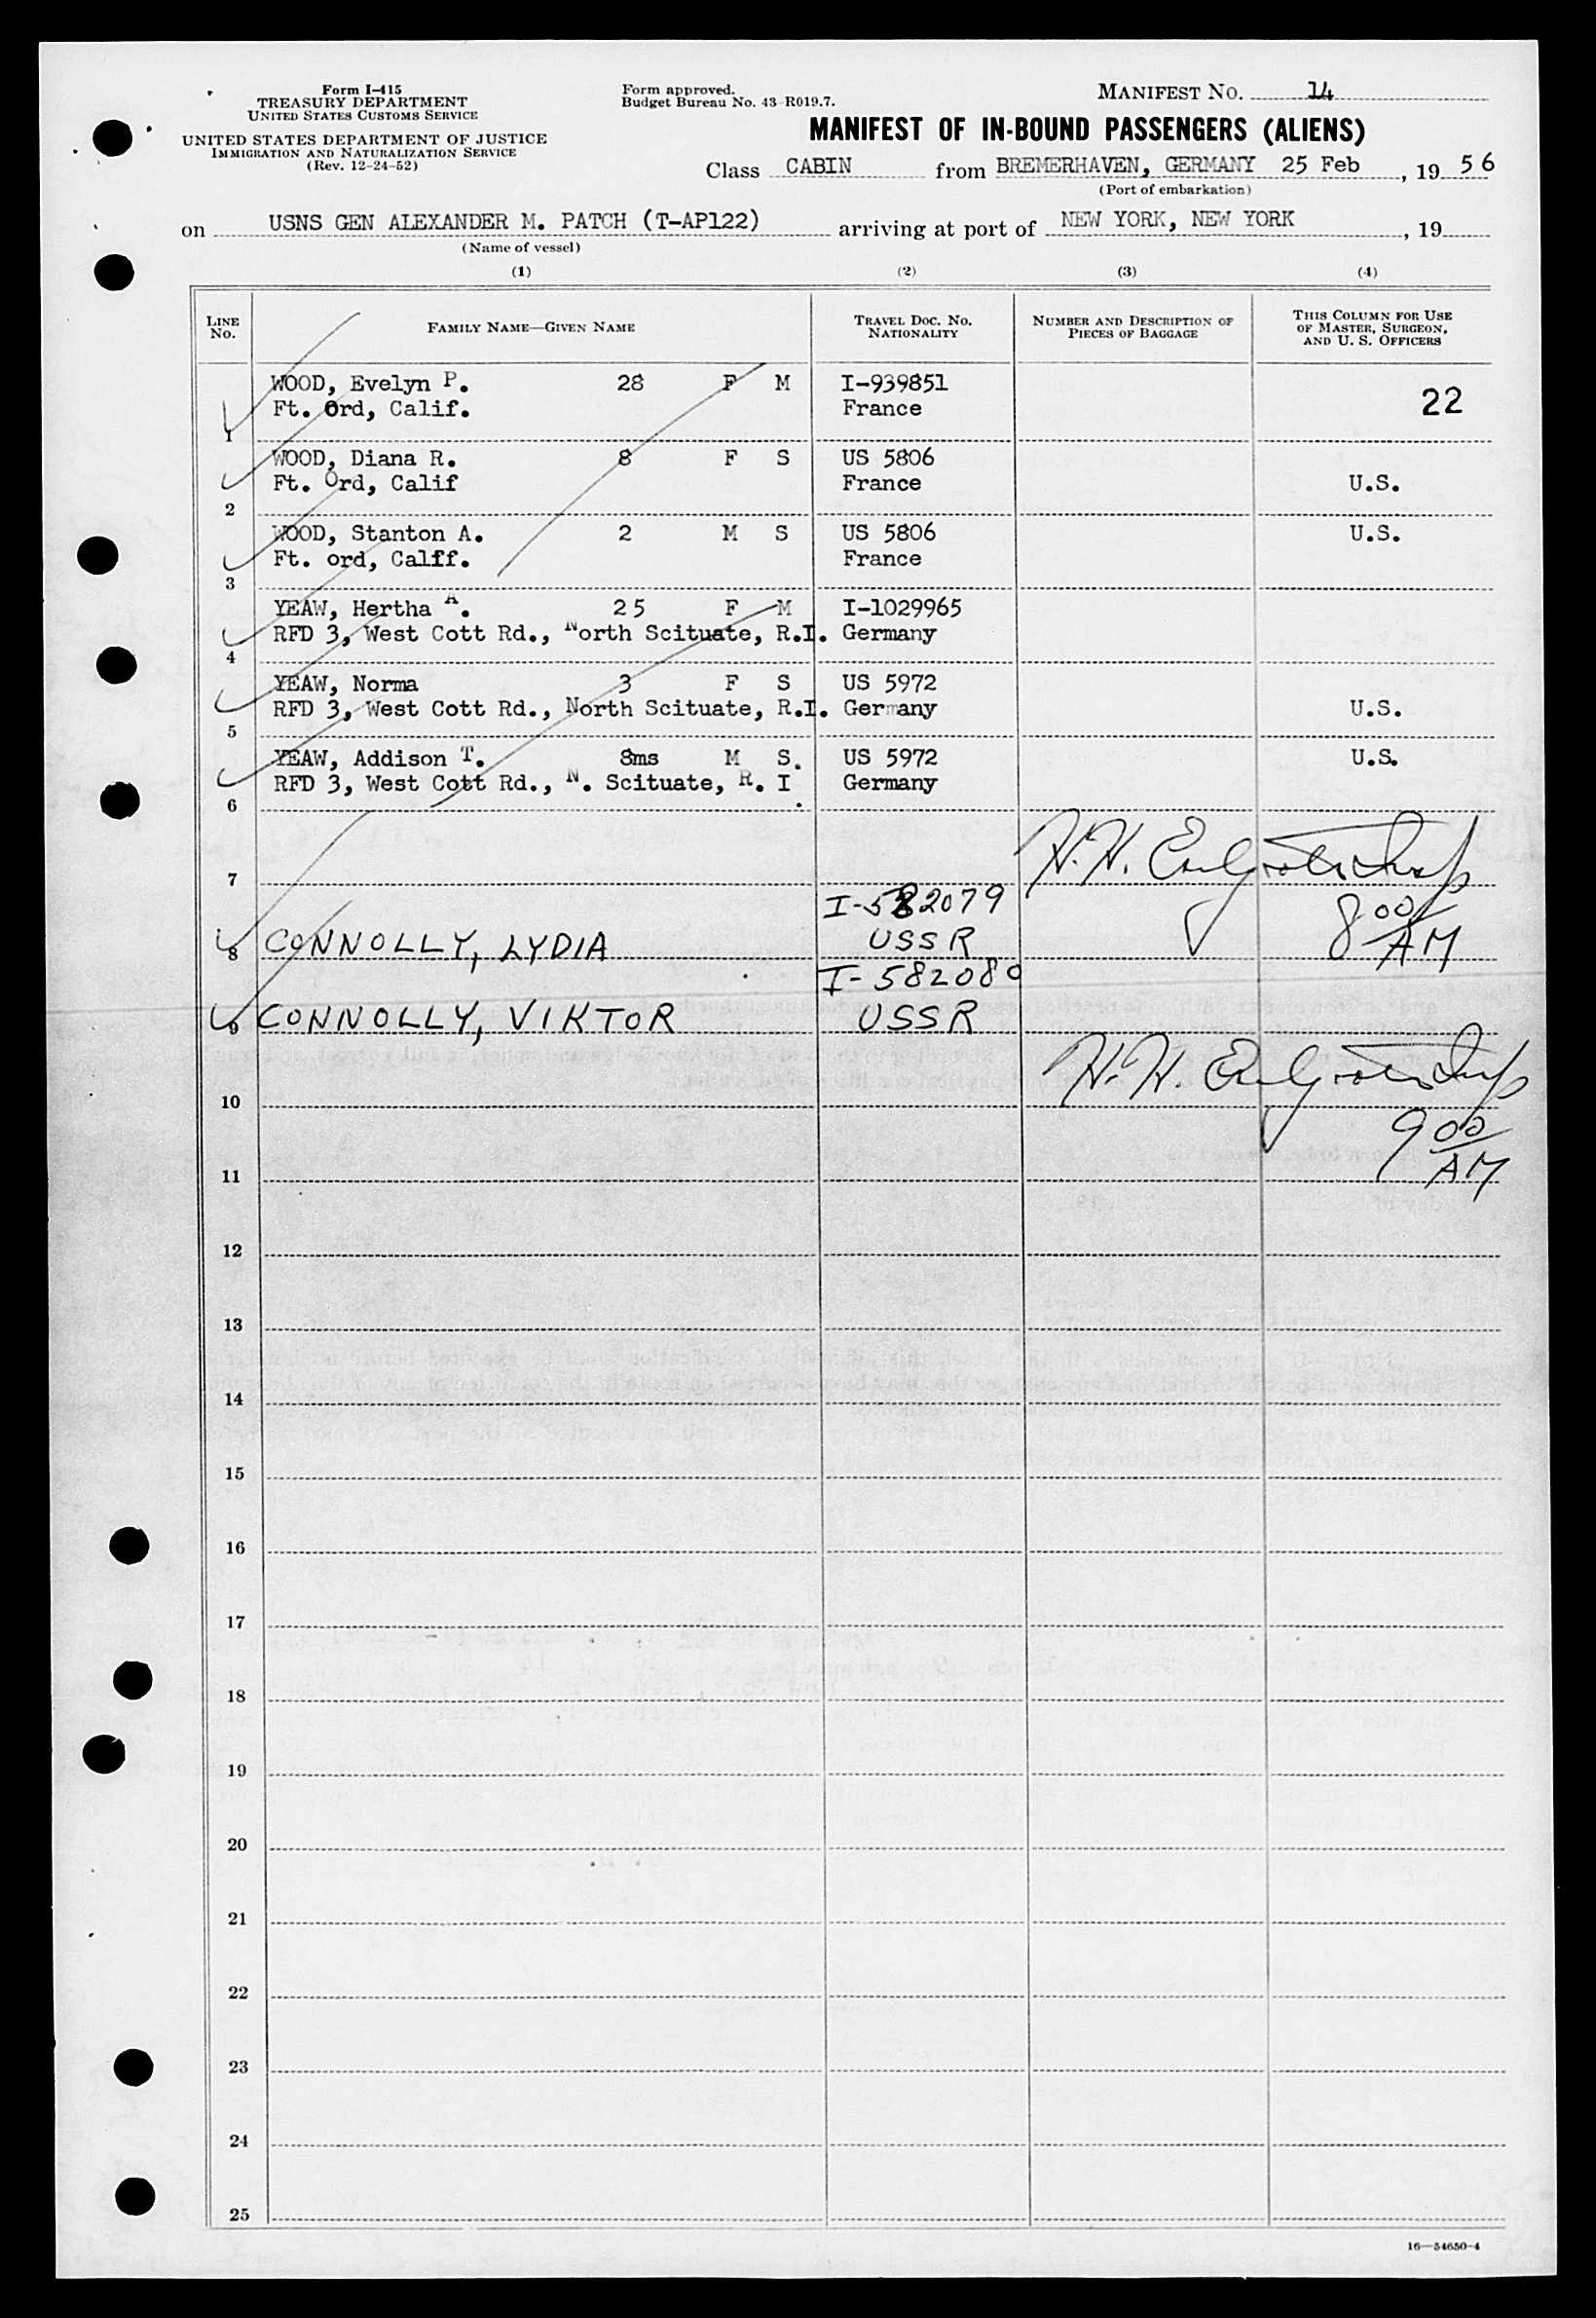 Form I-415
TREASURY DEPARTMENT
UNITED STATES CUSTOMS SERVICE
UNITED STATES DEPARTMENT OF JUSTICE
IMMIGRATION AND NATURALIZATION SERVICE
(Rev. 12-24-52)
Form approved.
Budget Bureau No. 43-R019.7.
MANIFEST NO. 14
MANIFEST OF IN-BOUND PASSENGERS (ALIENS)
Class CABIN from BREMERHAVEN, GERMANY 25 Feb, 19 56
(Port of embarkation)
on USNS GEN ALEXANDER M. PATCH (T-AP122) arriving at port of NEW YORK, NEW YORK, 19
(Name of vessel)
(1) (2) (3) (4)
LINE NO. FAMILY NAME—GIVEN NAME TRAVEL DOC. NO. NATIONALITY NUMBER AND DESCRIPTION OF PIECES OF BAGGAGE THIS COLUMN FOR USE OF MASTER, SURGEON, AND U. S. OFFICERS
WOOD, Evelyn P. 28 F M I-939851
Ft. Ord, Calif. France 22
1
WOOD, Diana R. 8 F S US 5806
Ft. Ord, Calif France U.S.
2
WOOD, Stanton A. 2 M S US 5806 U.S.
Ft. ord, Calff. France
3
YEAW, Hertha A. 25 F M I-1029965
RFD 3, West Cott Rd., North Scituate, R.I. Germany
4
YEAW, Norma 3 F S US 5972
RFD 3, West Cott Rd., North Scituate, R.I. Germany U.S.
5
YEAW, Addison T. 8ms M S. US 5972 U.S.
RFD 3, West Cott Rd., N. Scituate, R. I. Germany
6
7 H.H.
I-582079 8 00
8 CONNOLLY, LYDIA USSR AM
I-582080
9 CONNOLLY, VIKTOR USSR
H.H.
10
9 00
11 AM
12
13
14
15
16
17
18
19
20
21
22
23
24
25
16—54650-4